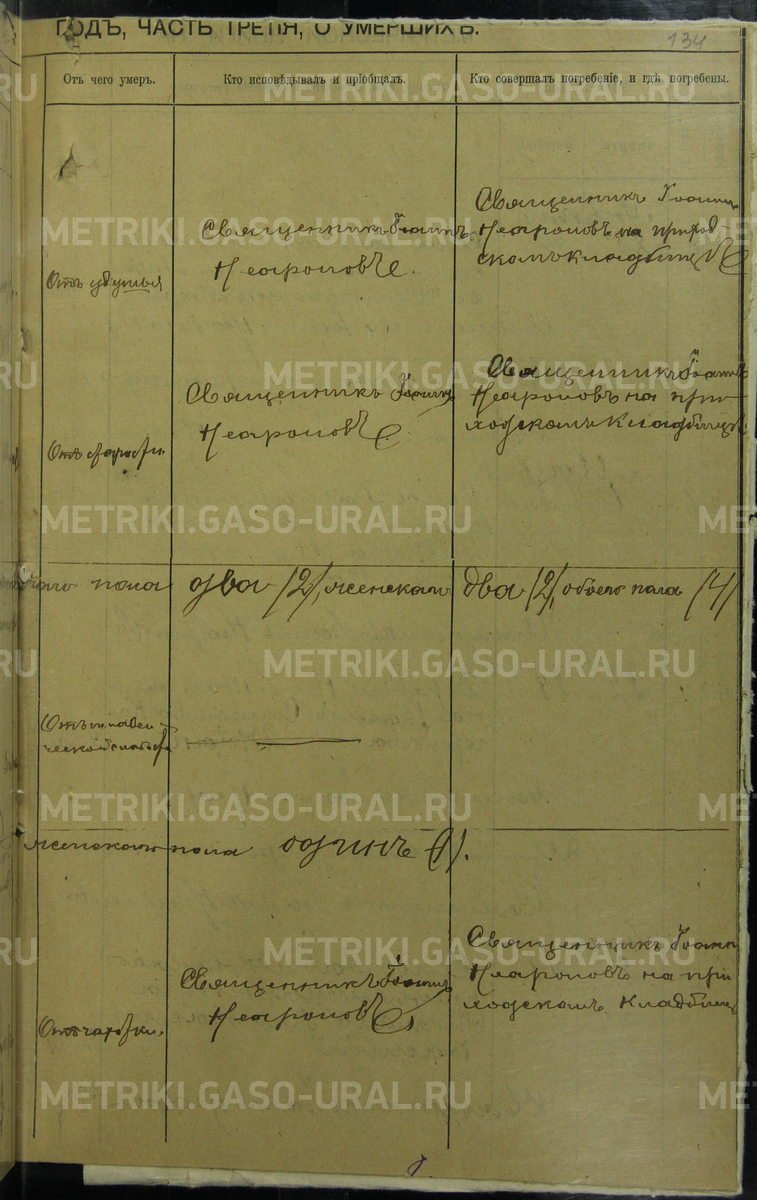 ГОДЪ, ЧАСТЬ ТРЕТІЯ, О УМЕРШИХЪ.
134
Отъ чего умеръ.
Кто исповѣдывалъ и пріобщалъ.
Кто совершалъ погребеніе, и гдѣ погребены.
Отъ удушья
Священникъ Іоаннъ
Неароновъ.
Священникъ Іоаннъ
Неароновъ на приход-
скомъ кладбищѣ
Отъ старости.
Священникъ Іоаннъ
Неароновъ
Священникъ Іоаннъ
Неароновъ на при-
ходскомъ кладбищѣ
пола два /2/, женскаго два /2/, обоего пола /4/
Отъ младен-
ческой слабос.
женскаго пола одинъ (1).
Отъ чахотки.
Священникъ Іоаннъ
Неароновъ
Священникъ Іоаннъ
Неароновъ на при
ходскомъ кладбищѣ
METRIKI.GASO-URAL.RU